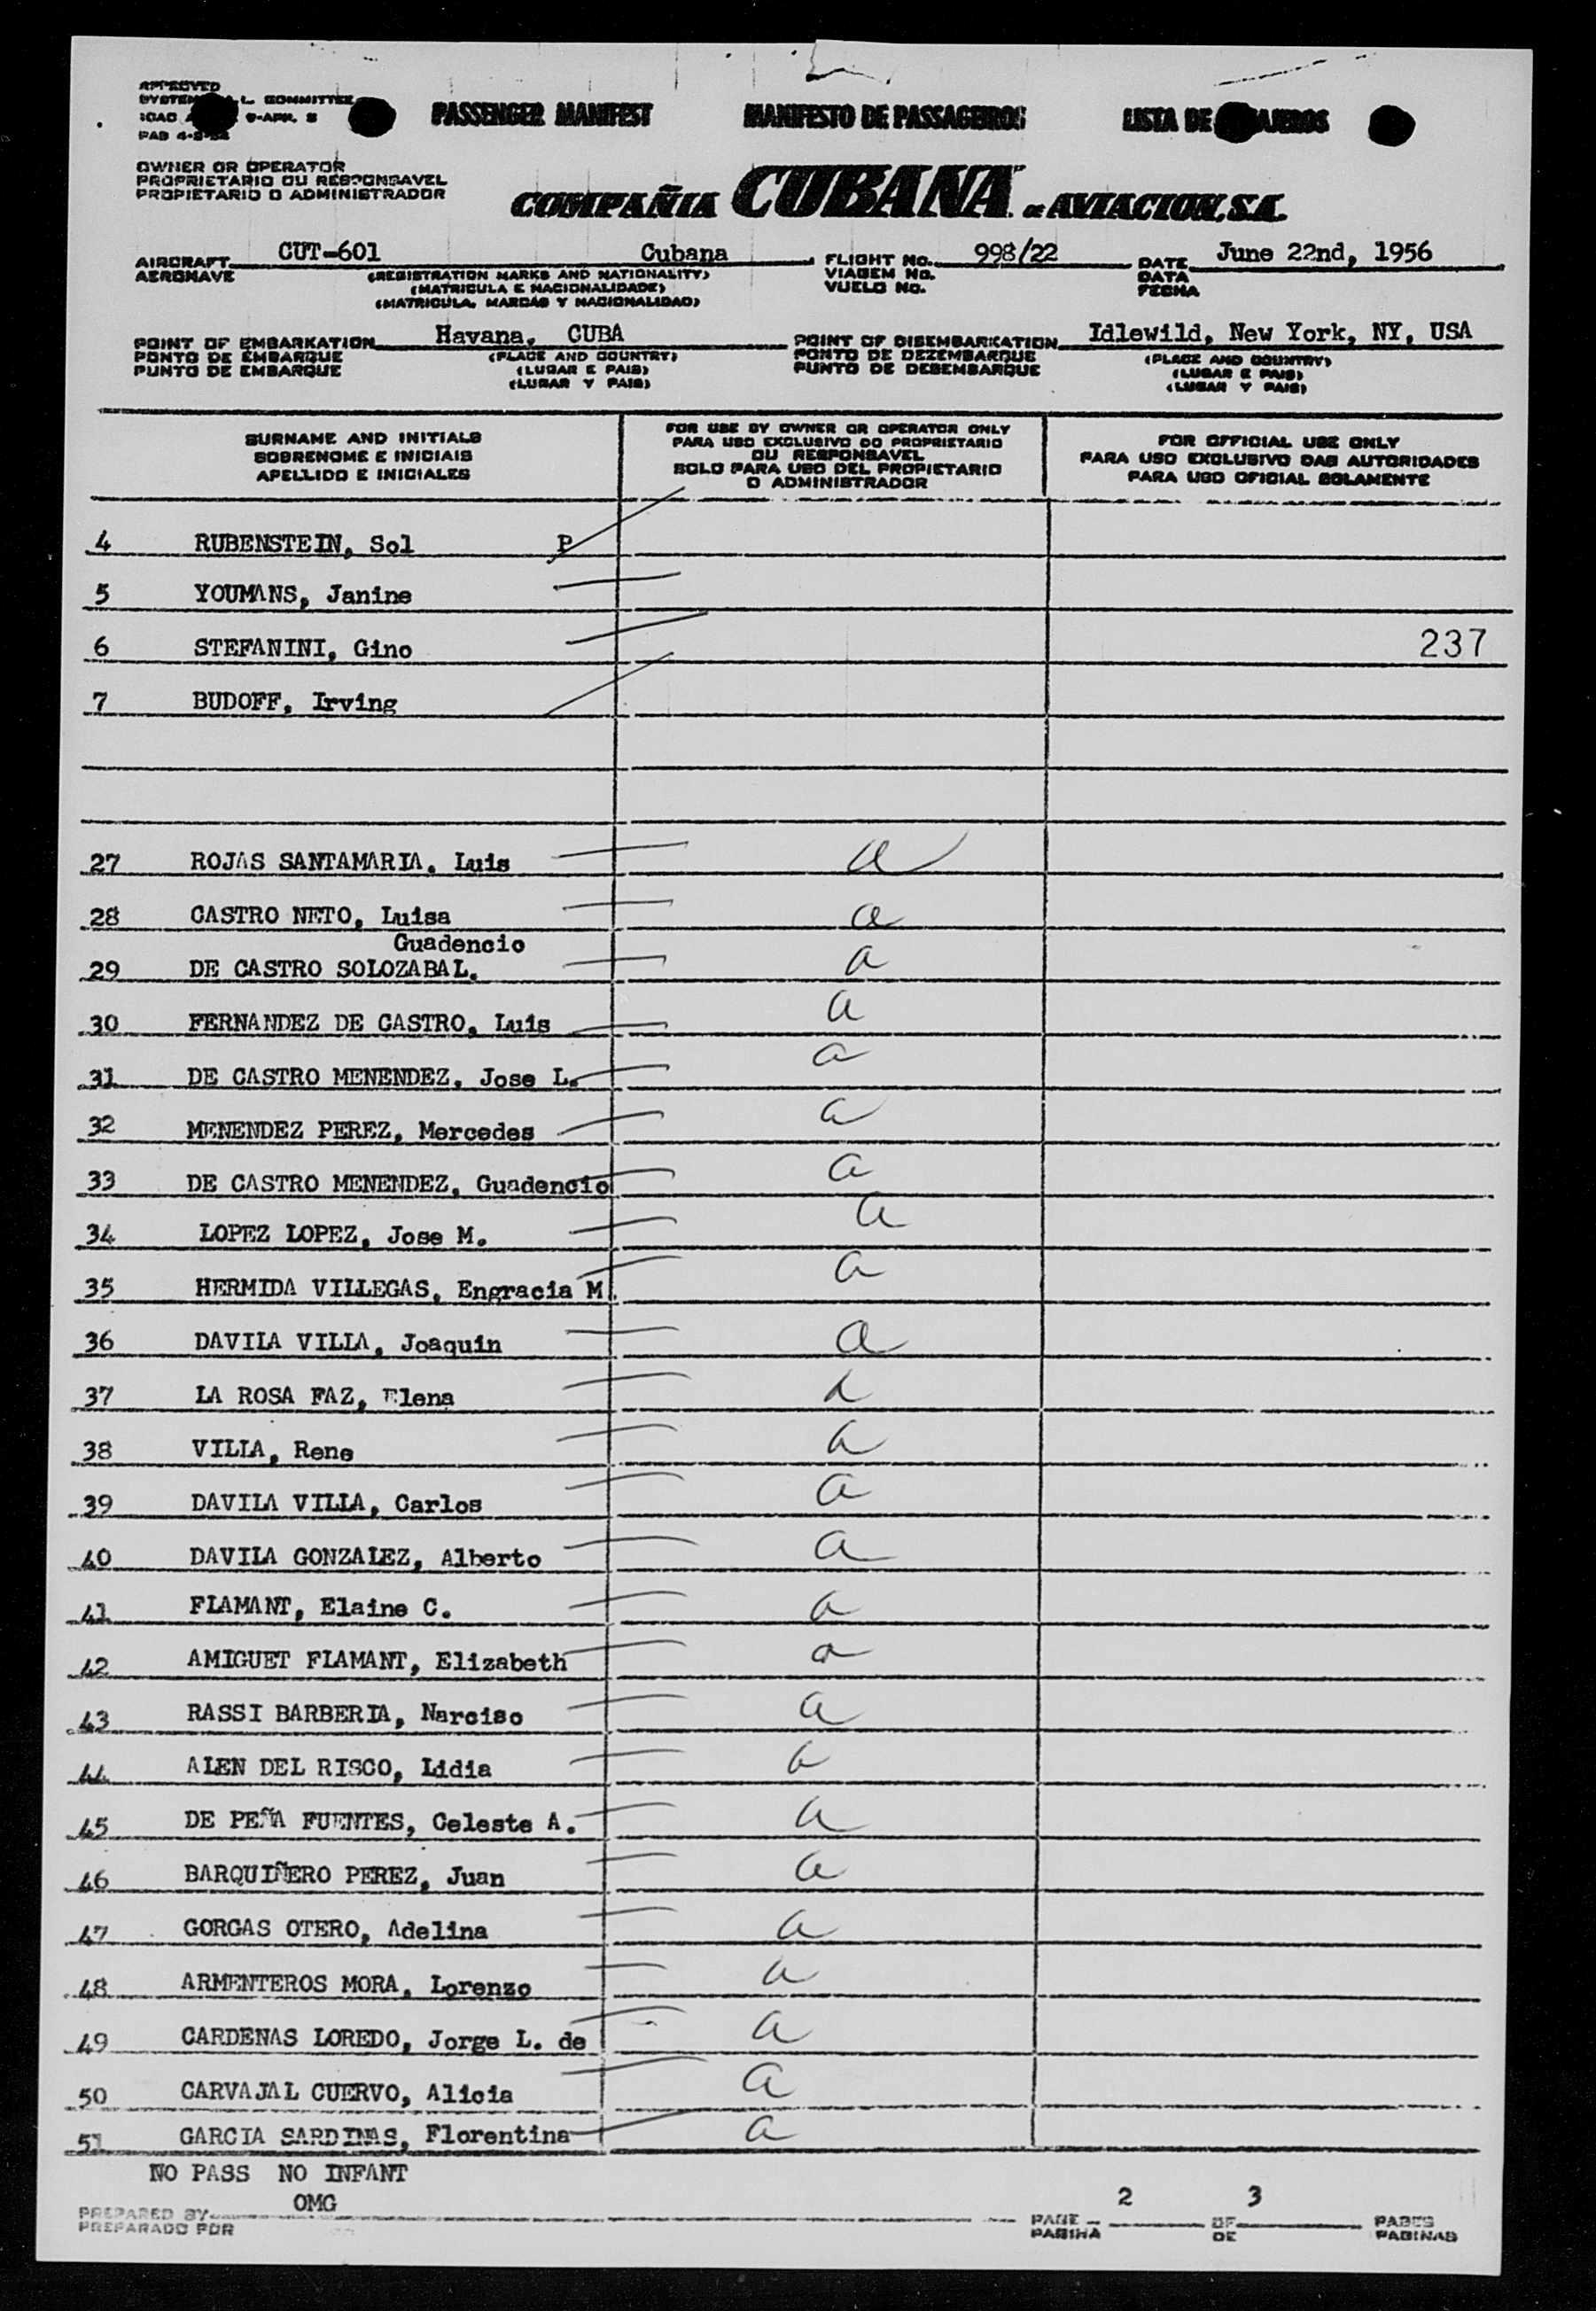 APPROVED
L. COMMITTEE
ICAO 9-APR. 5
PAB
PASSENGER MANIFEST MANIFESTO DE PASSAGEIROS LISTA DE
OWNER OR OPERATOR
PROPRIETARIO OU RESPONSAVEL
PROPIETARIO O ADMINISTRADOR
COMPAÑIA CUBANA DE AVIACION, S.A.
AIRCRAFT CUT-601 Cubana FLIGHT No. 998/22 DATE June 22nd, 1956
AERONAVE (REGISTRATION MARKS AND NATIONALITY) VIAGEM No. DATA
(MATRICULA E NACIONALIDADE) VUELO No. FECHA
(MATRICULA, MARCAS Y NACIONALIDAD)
POINT OF EMBARKATION Havana, CUBA POINT OF DISEMBARKATION Idlewild, New York, NY, USA
PONTO DE EMBARQUE (PLACE AND COUNTRY) PONTO DE DEZEMBARQUE (PLACE AND COUNTRY)
PUNTO DE EMBARQUE (LUGAR E PAIS) PUNTO DE DESEMBARQUE (LUGAR E PAIS)
(LUGAR Y PAIS) (LUGAR Y PAIS)
SURNAME AND INITIALS
SOBRENOME E INICIAIS
APELLIDO E INICIALES
FOR USE BY OWNER OR OPERATOR ONLY
PARA USO EXCLUSIVO DO PROPRIETARIO
OU RESPONSAVEL
SOLO PARA USO DEL PROPIETARIO
O ADMINISTRADOR
FOR OFFICIAL USE ONLY
PARA USO EXCLUSIVO DAS AUTORIDADES
PARA USO OFICIAL SOLAMENTE
4 RUBENSTEIN, Sol P
5 YOUMANS, Janine
6 STEFANINI, Gino 237
7 BUDOFF, Irving
27 ROJAS SANTAMARIA, Luis a
28 CASTRO NETO, Luisa a
Guadencio
29 DE CASTRO SOLOZABAL, a
30 FERNANDEZ DE CASTRO, Luis a
31 DE CASTRO MENENDEZ, Jose L. a
32 MENENDEZ PEREZ, Mercedes a
33 DE CASTRO MENENDEZ, Guadencio a
34 LOPEZ LOPEZ, Jose M. a
35 HERMIDA VILLEGAS, Engracia M. a
36 DAVILA VILLA, Joaquin a
37 LA ROSA FAZ, Elena a
38 VILLA, Rene a
39 DAVILA VILLA, Carlos a
40 DAVILA GONZALEZ, Alberto a
41 FLAMANT, Elaine C. a
42 AMIGUET FLAMANT, Elizabeth a
43 RASSI BARBERIA, Narciso a
44 ALEN DEL RISCO, Lidia a
45 DE PEÑA FUENTES, Celeste A. a
46 BARQUIÑERO PEREZ, Juan a
47 GORGAS OTERO, Adelina a
48 ARMENTEROS MORA, Lorenzo a
49 CARDENAS LOREDO, Jorge L. de a
50 CARVAJAL CUERVO, Alicia a
51 GARCIA SARDINAS, Florentina a
NO PASS NO INFANT
PREPARED BY OMG PAGE 2 OF 3 PAGES
PREPARADO POR PAGINA DE PAGINAS